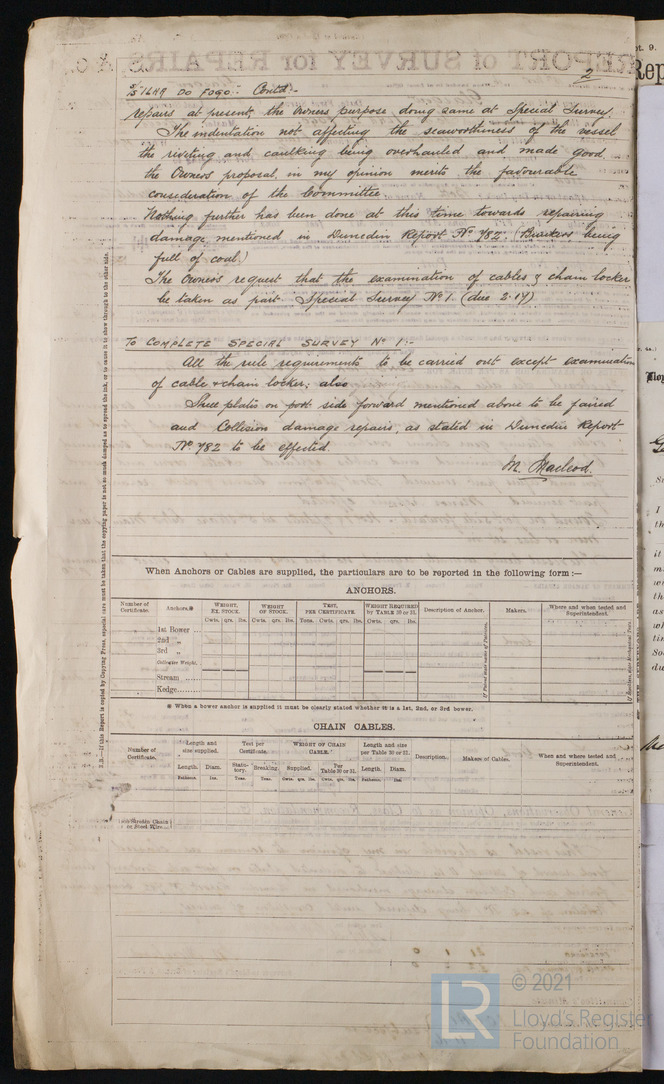 2
S/S ILHA DO FOGO :- Contd :-
repairs at present, the Owners purpose doing same at Special Survey.
The indentation not affecting the seaworthiness of the vessel
the riveting and caulking being overhauled and made good,
the Owners proposal, in my opinion merits the favourable
consideration of the Committee
Nothing further has been done at this time towards repairing
damage, mentioned in Dunedin Report No 782. (Bunkers being
full of coal.)
The Owners request that the examination of cables & chain locker
be taken as part Special Survey No 1. (due 2.17)
TO COMPLETE SPECIAL SURVEY No 1 :-
All the rule requirements to be carried out except examination
of cable & chain locker; also
Three plates on port side forward mentioned above to be faired
and Collision damage repairs, as stated in Dunedin Report
No 782 to be effected.
M. Macleod.
N.B.—If this Report is copied by Copying Press, especial care must be taken that the copying paper is not so much damped as to spread the ink, or to cause it to show through to the other side.
When Anchors or Cables are supplied, the particulars are to be reported in the following form :—
ANCHORS.
Number of Certificate. Anchors.* WEIGHT, EX. STOCK. WEIGHT OF STOCK. TEST, PER CERTIFICATE. WEIGHT REQUIRED by TABLE 30 or 31. Description of Anchor. Makers. Where and when tested and Superintendent.
Cwts. qrs. lbs. Cwts. qrs. lbs. Tons. Cwts. qrs. lbs. Cwts. qrs. lbs.
1st Bower ...
2nd „
3rd „
Collective Weight.
Stream ......
Kedge.........
* When a bower anchor is supplied it must be clearly stated whether it is a 1st, 2nd, or 3rd bower.
CHAIN CABLES.
Number of Certificate. Length and size supplied. Test per Certificate. WEIGHT OF CHAIN CABLE. Length and size per Table 30 or 31. Description. Makers of Cables. When and where tested and Superintendent.
Length. Diam. Statutory. Breaking. Supplied. Per Table 30 or 31. Length. Diam.
Fathoms. Ins. Tons. Tons. Cwts. qrs. lbs. Cwts. qrs. lbs. Fathoms. Ins.
Stream Chain or Steel Wire
© 2021
LR Lloyd's Register
Foundation